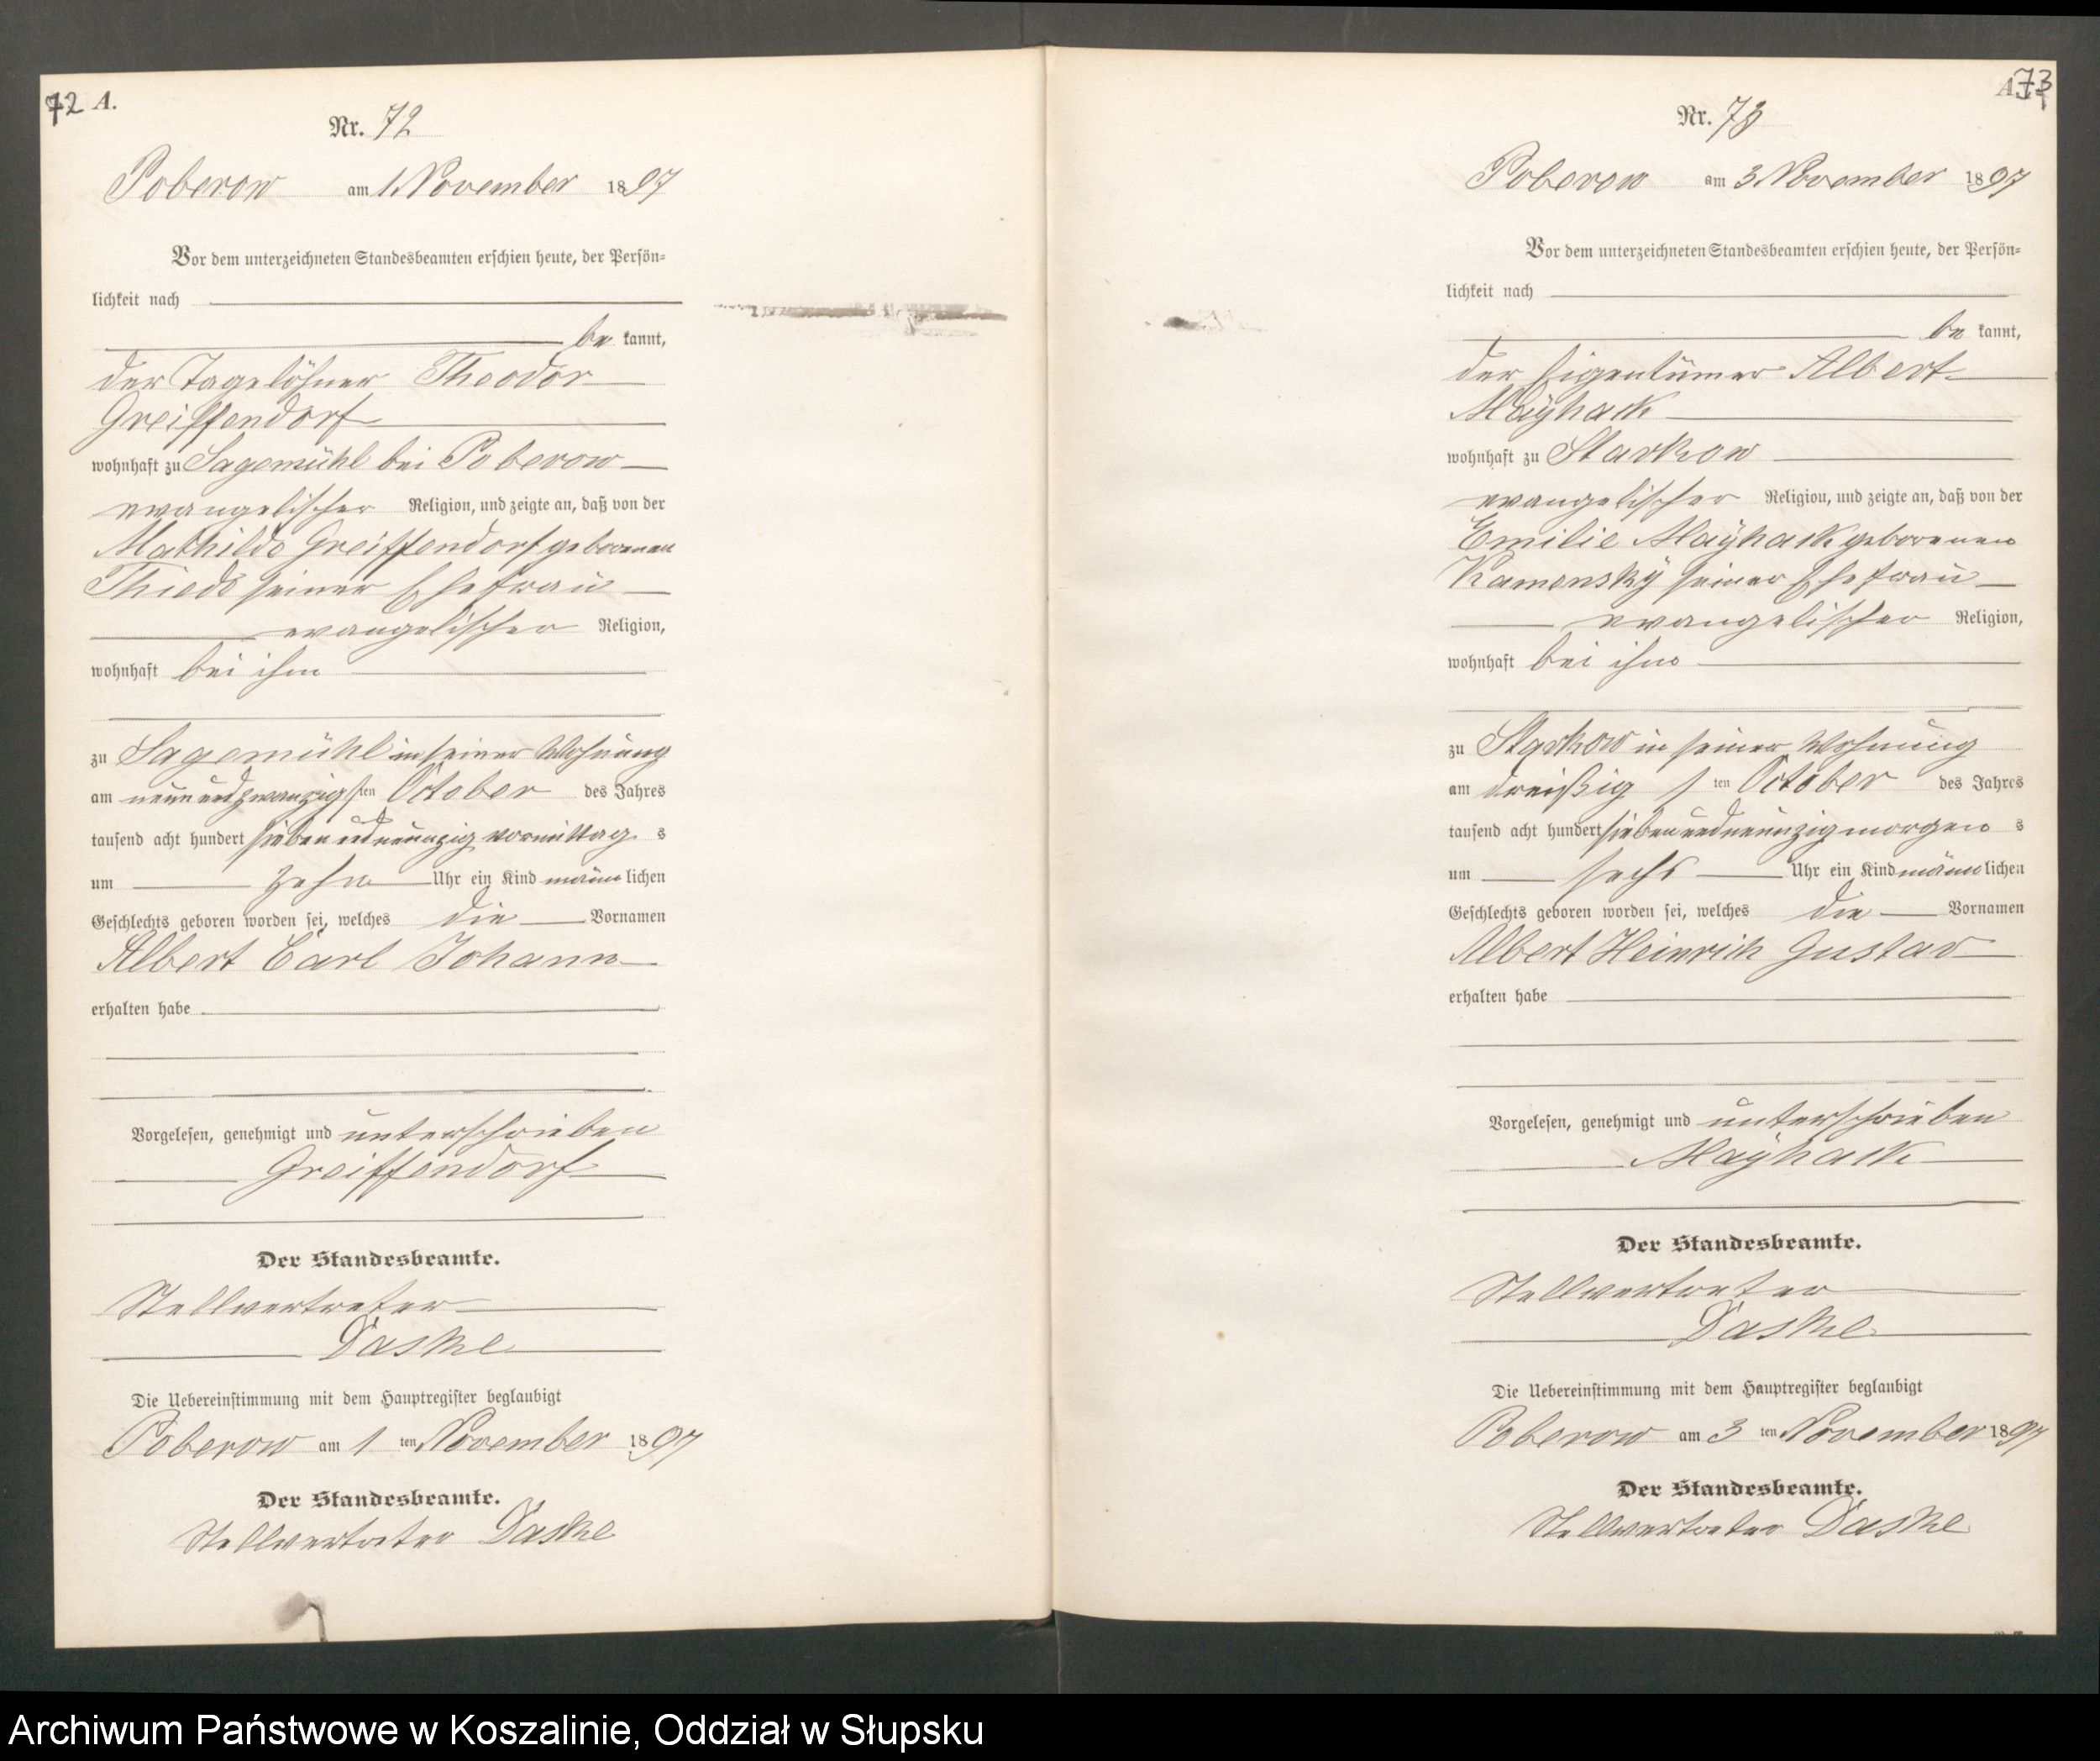 72 A.
Nr. 72
Poberow am 1 November 1897
Vor dem unterzeichneten Standesbeamten erschien heute, der Persön=
lichkeit nach
be kannt,
der Tagelöhner Theodor
Greiffendorf
wohnhaft zu Sagemühl bei Poberow
evangelischer Religion, und zeigte an, daß von der
Mathilde Greiffendorf geborenen
Thiede seiner Ehefrau
evangelischer Religion,
wohnhaft bei ihm
zu Sagemühl in seiner Wohnung
am neunundzwanzigsten October des Jahres
tausend acht hundert siebenundneunzig vormittag s
um zehn Uhr ein Kind männlichen
Geschlechts geboren worden sei, welches die Vornamen
Albert Carl Johann
erhalten habe
Vorgelesen, genehmigt und unterschrieben
Greiffendorf
Der Standesbeamte.
Stellvertreter
Daske
Die Uebereinstimmung mit dem Hauptregister beglaubigt
Poberow am 1 ten November 1897
Der Standesbeamte.
Stellvertreter Daske
A. 73
Nr. 73
Poberow am 3 November 1897
Vor dem unterzeichneten Standesbeamten erschien heute, der Persön=
lichkeit nach
be kannt,
der Eigentümer Albert
Mayhack
wohnhaft zu Starkow
evangelischer Religion, und zeigte an, daß von der
Emilie Mayhack geborenen
Kamensky seiner Ehefrau
evangelischer Religion,
wohnhaft bei ihm
zu Starkow in seiner Wohnung
am dreißig s ten October des Jahres
tausend acht hundert siebenundneunzig morgen s
um sechs Uhr ein Kind männlichen
Geschlechts geboren worden sei, welches die Vornamen
Albert Heinrich Gustav
erhalten habe
Vorgelesen, genehmigt und unterschrieben
Mayhack
Der Standesbeamte.
Stellvertreter
Daske
Die Uebereinstimmung mit dem Hauptregister beglaubigt
Poberow am 3 ten November 1897
Der Standesbeamte.
Stellvertreter Daske
Archiwum Państwowe w Koszalinie, Oddział w Słupsku